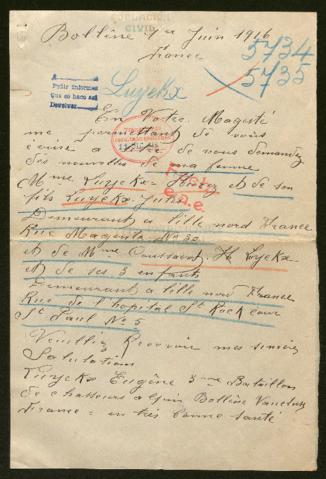 POBLACION
CIVIL
Bollène 1er Juin 1916
France
5734
5735
Pedir informes
Que se haco así
Devolver
Luyckx
En Votre Magesté
me permettant de vous
écrire a de vous demander
des nouvelles de ma femme
Mme Luyckx et de son
fils Luyckx
Demeurant a lille nord France
Rue Magenta No 30
et de Mme Luyckx
et de ses 3 enfants
Demeurant a lille nord France
Rue de l'hopital St Roch cour
St Paul No 5
Veuillez Recevoir mes sincères
Salutations
Luyckx Eugène 3me Bataillon
de chasseurs alpin Bollène Vaucluse
France en très bonne santé